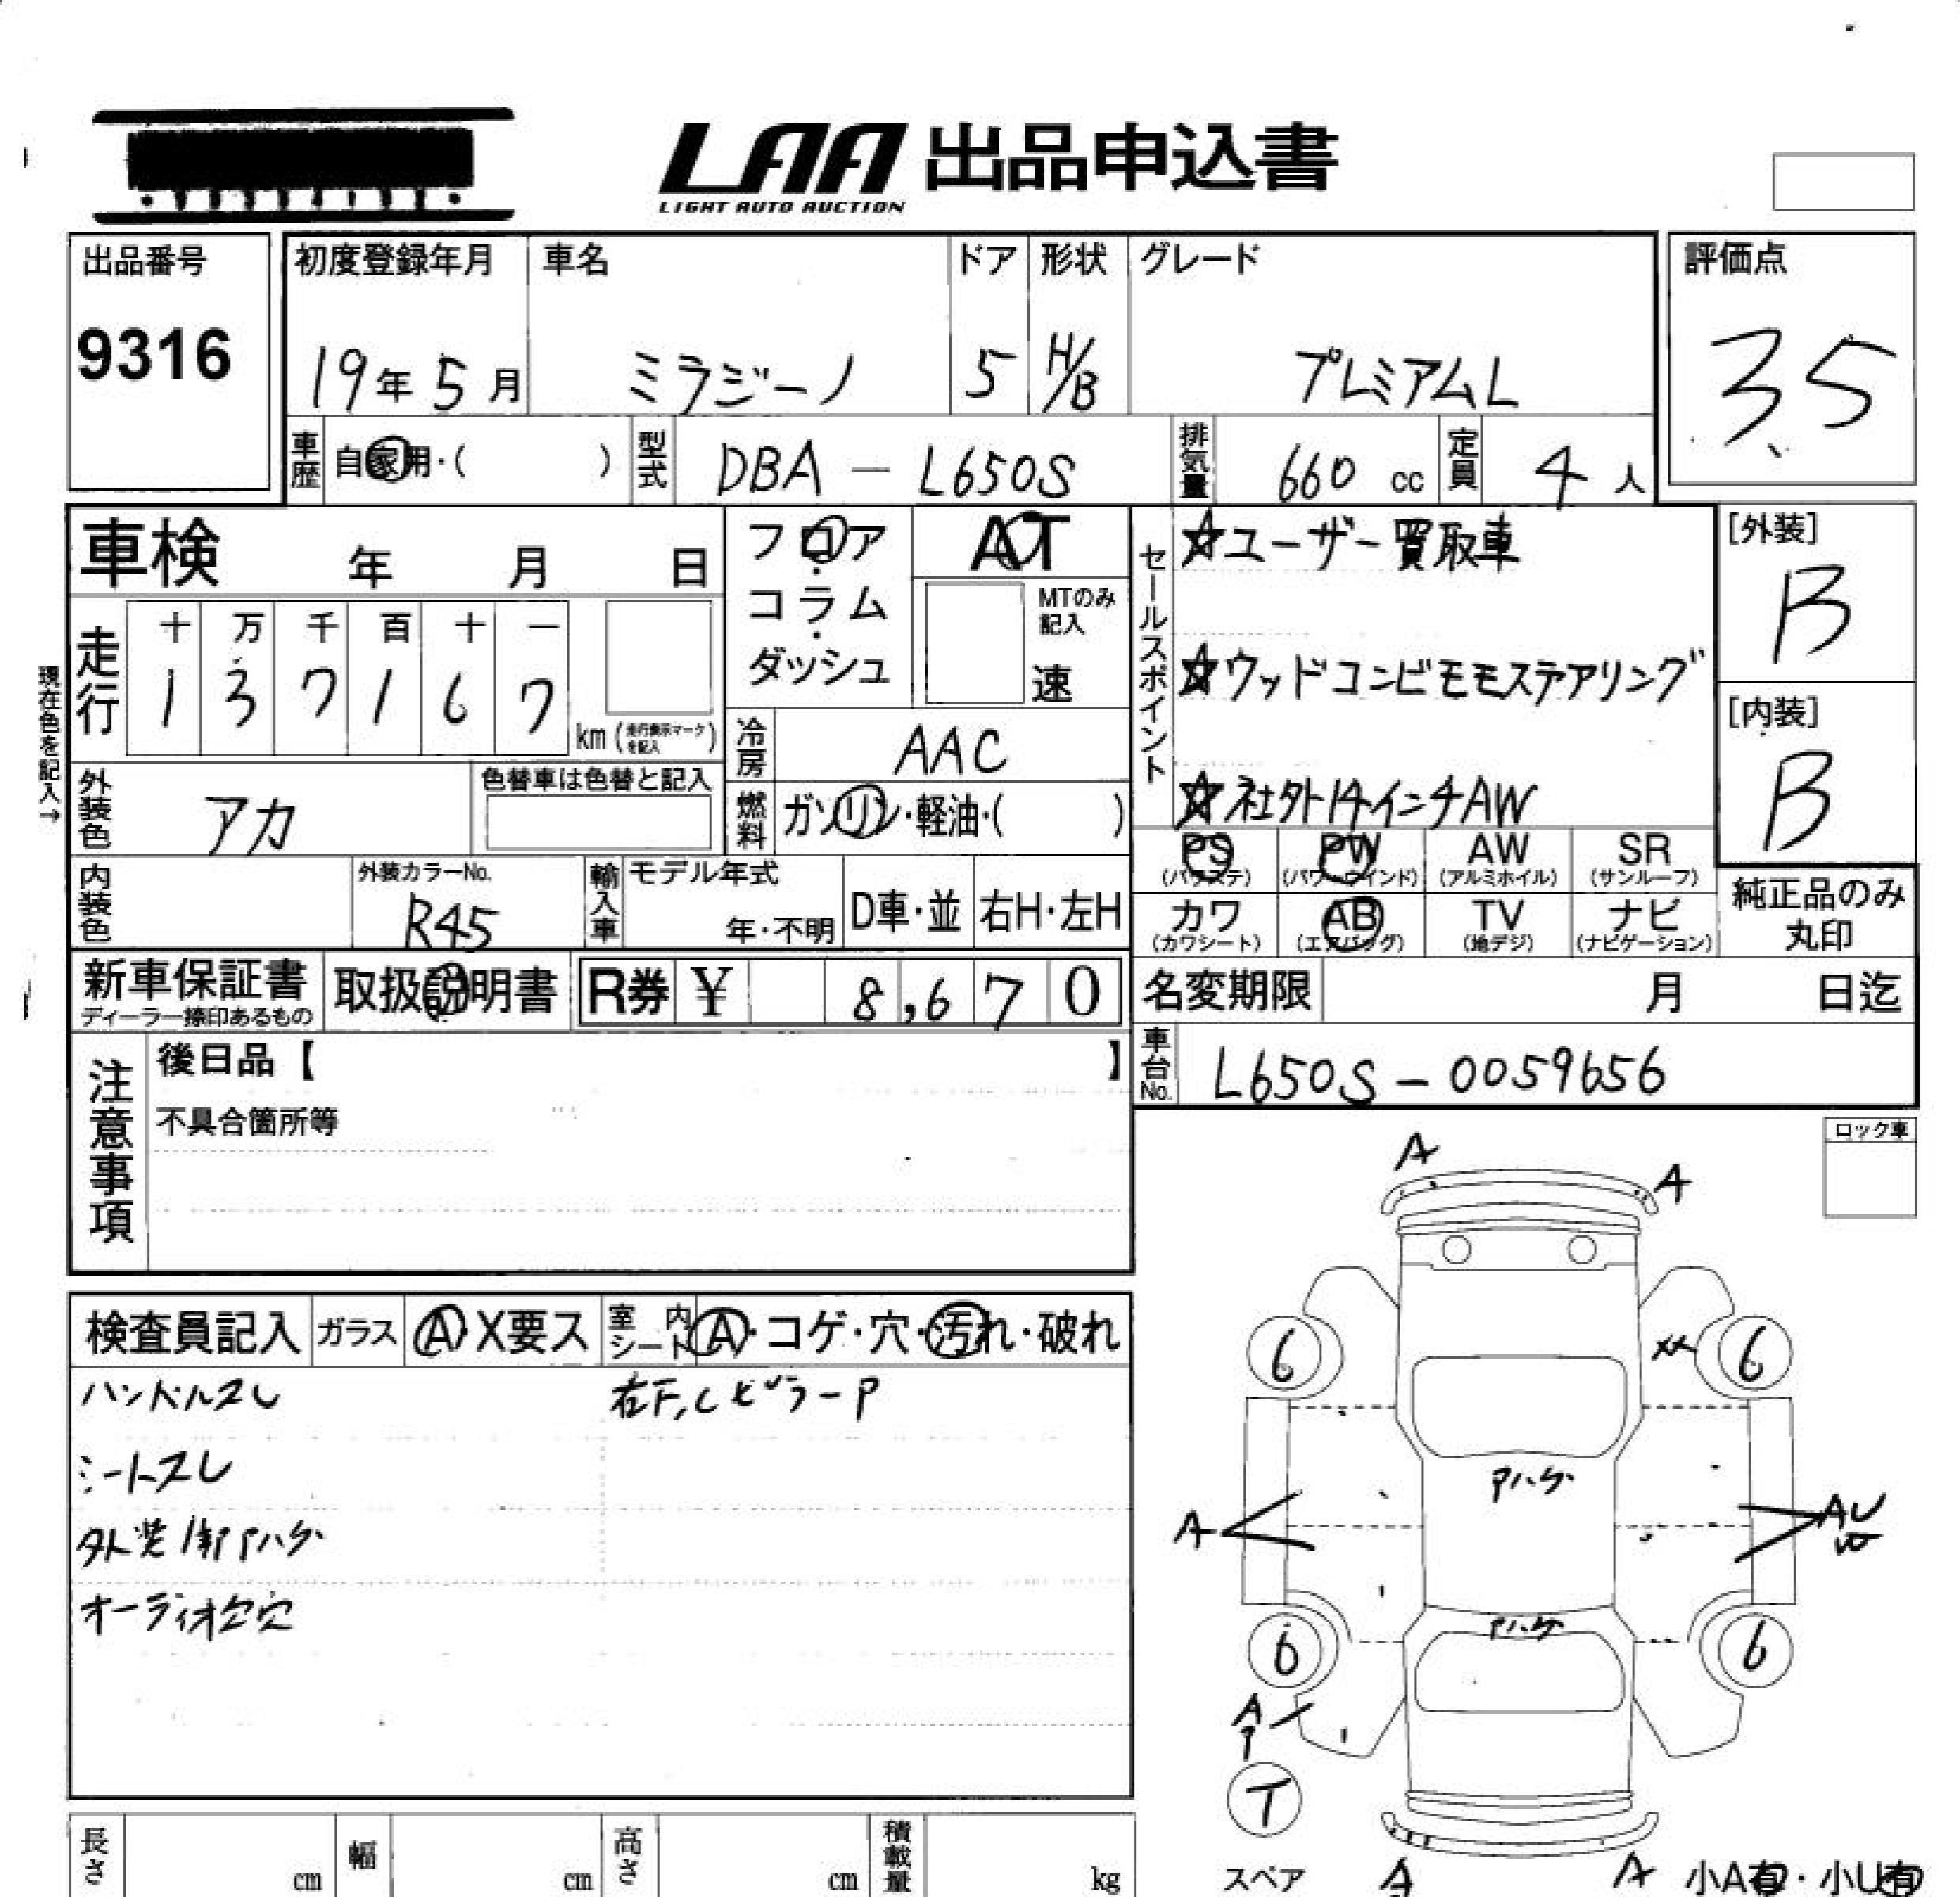 LAA 出品申込書
LIGHT AUTO AUCTION
出品番号
9316
初度登録年月
19年5月
車名
ミラジーノ
ドア
5
形状
H/B
グレード
プレミアムL
評価点
3.5
車歴
自家用・( )
型式
DBA - L650S
排気量
660 cc
定員
4人
車検 年 月 日
走行
十 万 千 百 十 一
1 3 7 1 6 7
km (走行表示マークを記入)
現在色を記入→
フロア
・
コラム
・
ダッシュ
AT
MTのみ
記入
速
冷房
AAC
燃料
ガソリン・軽油・( )
外装色
アカ
色替車は色替と記入
内装色
外装カラーNo.
R45
輸入車
モデル年式
年・不明
D車・並
右H・左H
新車保証書
ディーラー捺印あるもの
取扱説明書
R券 ¥ 8,670
セールスポイント
☆ユーザー買取車
☆ウッドコンビモモステアリング
☆社外14インチAW
[外装]
B
[内装]
B
PS
(パワステ)
PW
(パワーウインド)
AW
(アルミホイル)
SR
(サンルーフ)
カワ
(カワシート)
AB
(エアバッグ)
TV
(地デジ)
ナビ
(ナビゲーション)
純正品のみ
丸印
名変期限 月 日迄
車台No.
L650S - 0059656
注意事項
後日品【 】
不具合箇所等
ロック車
検査員記入
ガラス
A・X要ス
室内
シート
A・コゲ・穴・汚れ・破れ
ハンドルスレ
右F,Cピラーp
シートスレ
外装 Pハゲ
オーディオ欠穴
A
A
6
XX
6
Pハゲ
A
AU
Pハゲ
6
6
A
P
T
スペア
A
A
小A有・小U有
長さ cm
幅 cm
高さ cm
積載量 kg